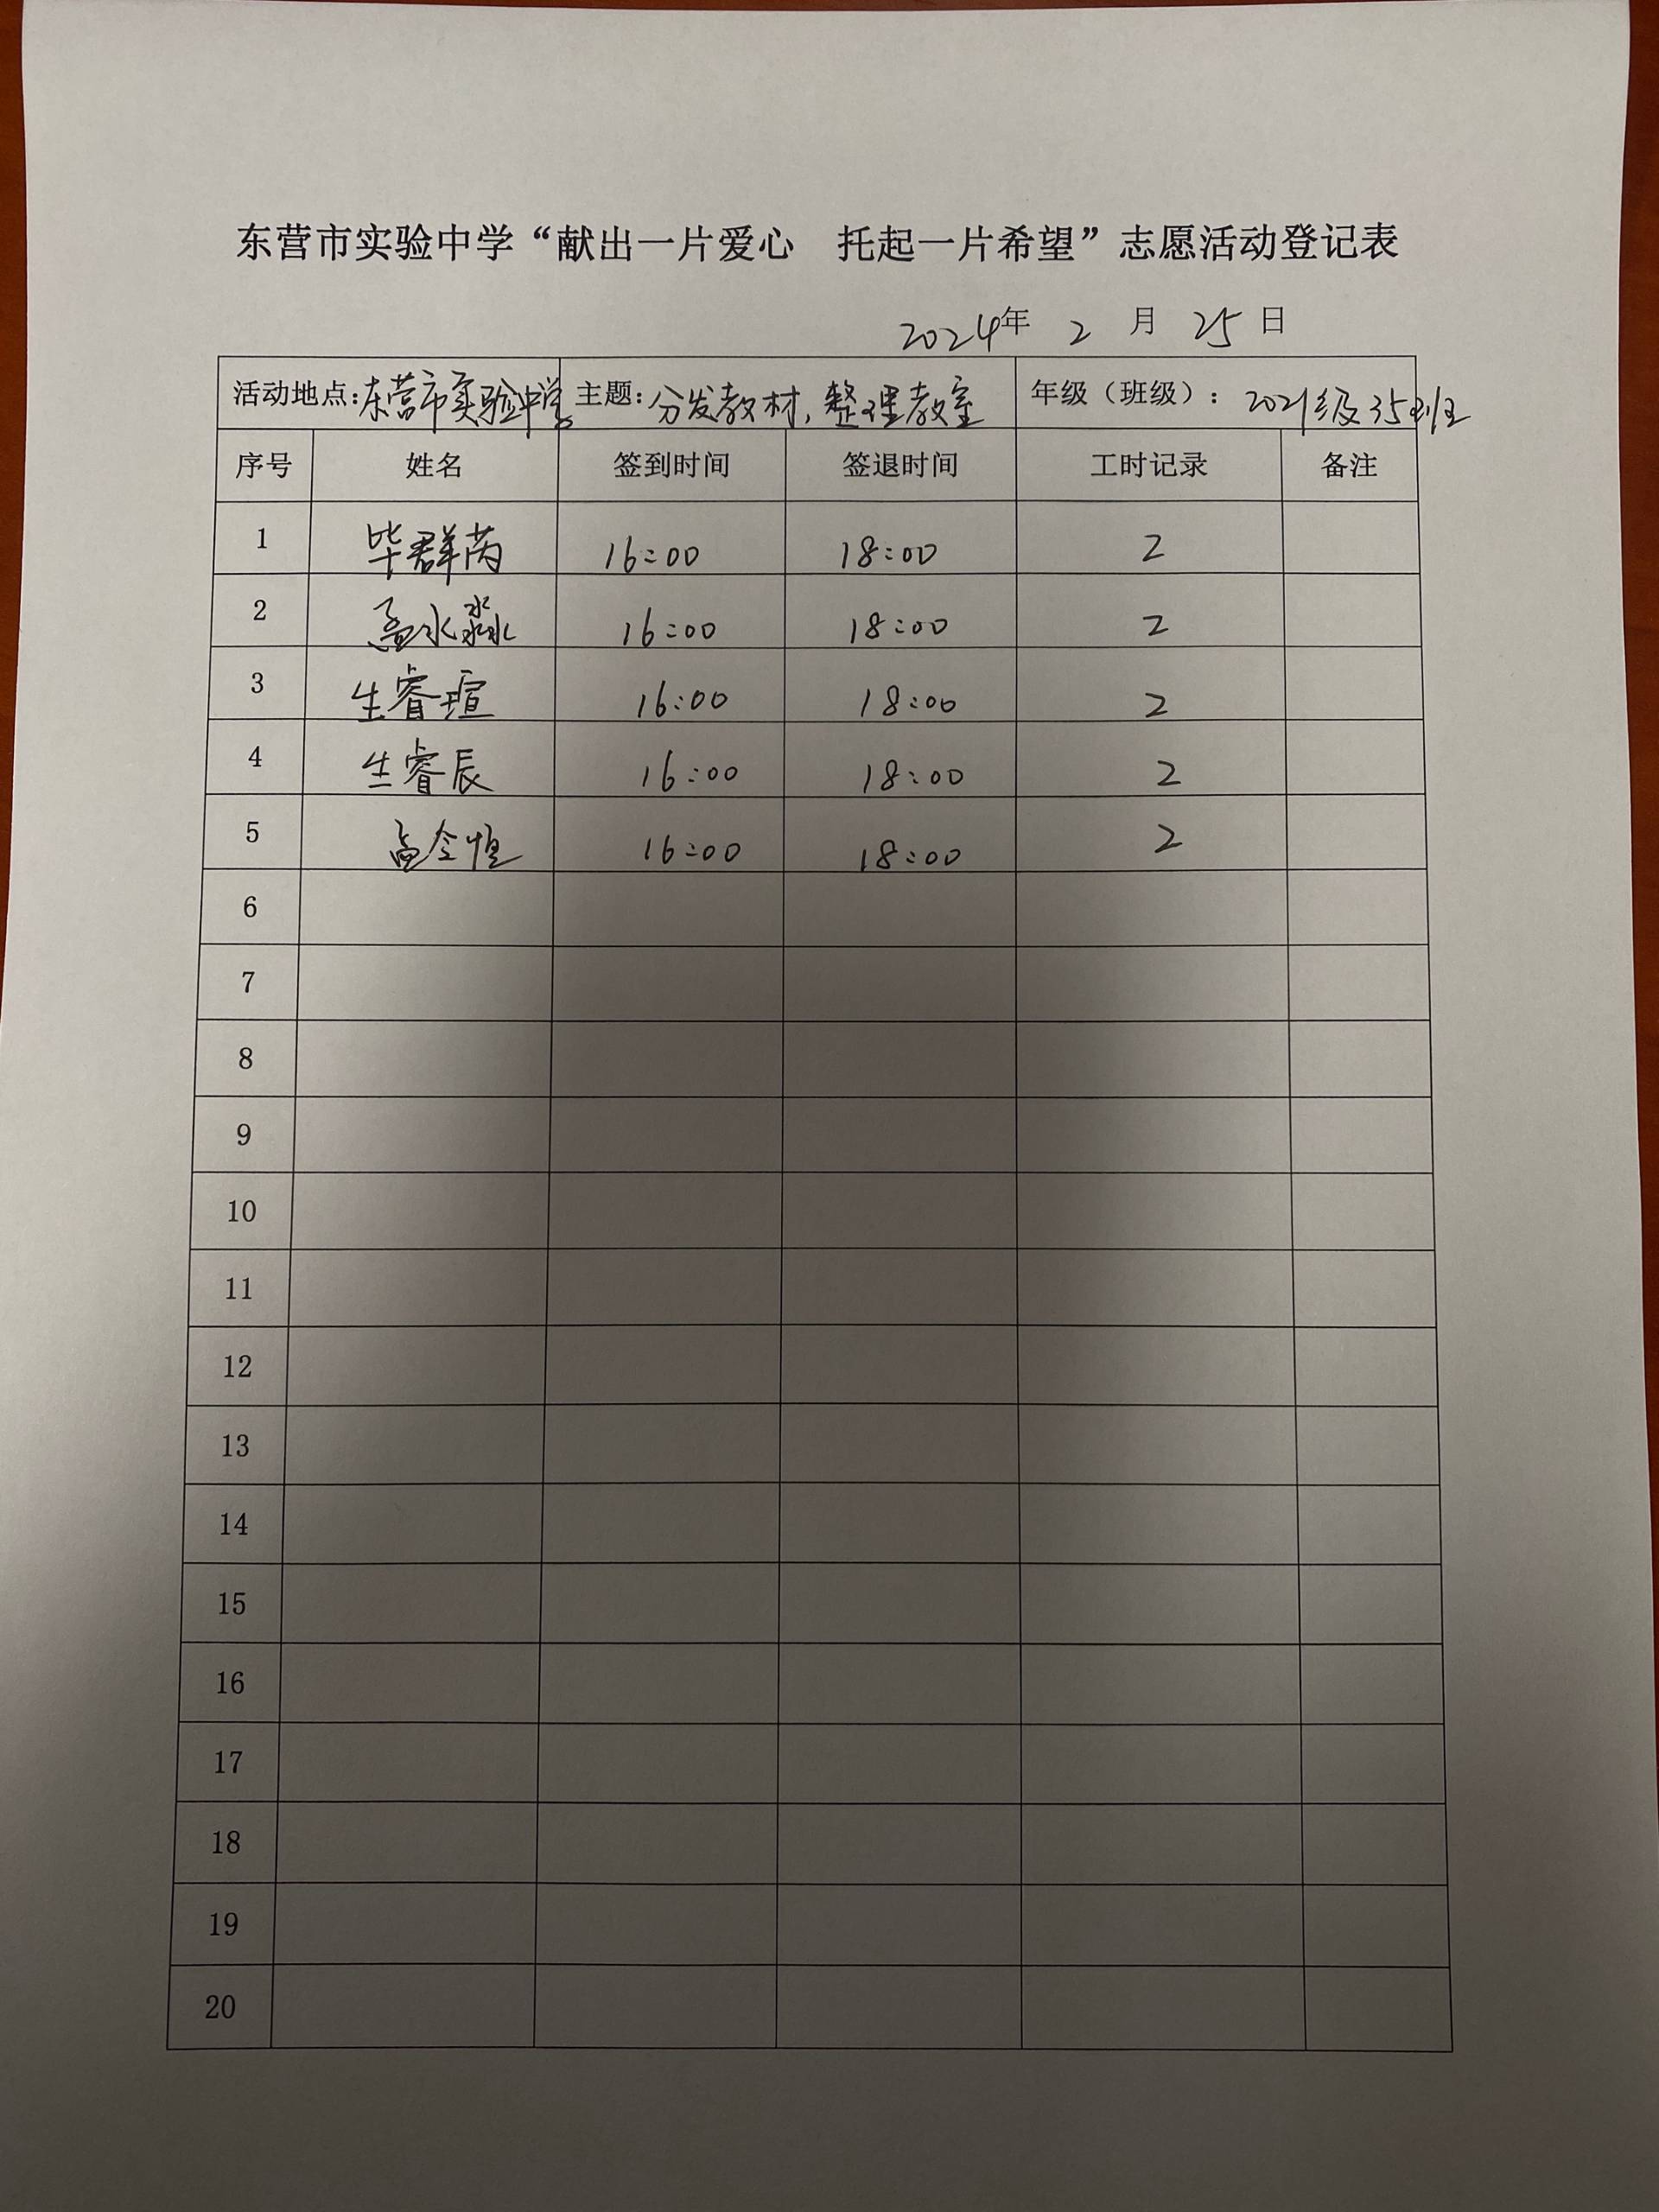 东营市实验中学“献出一片爱心　托起一片希望”志愿活动登记表
2024年 2 月 25 日
活动地点:东营市实验中学 主题:分发教材,整理教室 年级（班级）: 2021级35班
序号 姓名 签到时间 签退时间 工时记录 备注
1 毕群芮 16:00 18:00 2
2 孟水淼 16:00 18:00 2
3 生睿瑄 16:00 18:00 2
4 生睿辰 16:00 18:00 2
5 孟令恒 16:00 18:00 2
6
7
8
9
10
11
12
13
14
15
16
17
18
19
20